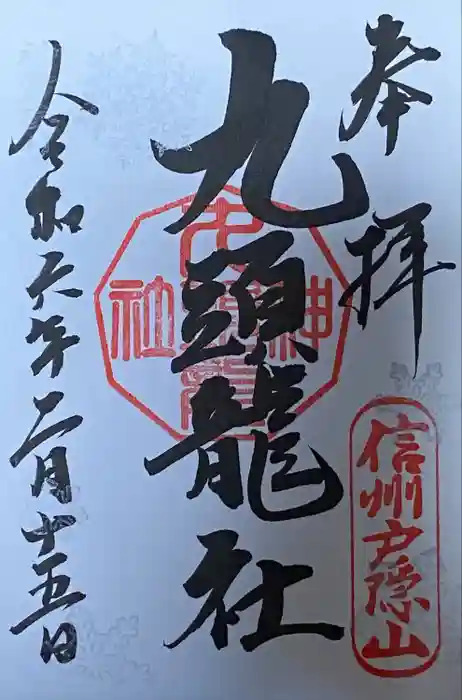 奉拝
信州戸隠山
九頭龍社
令和六年二月十五日